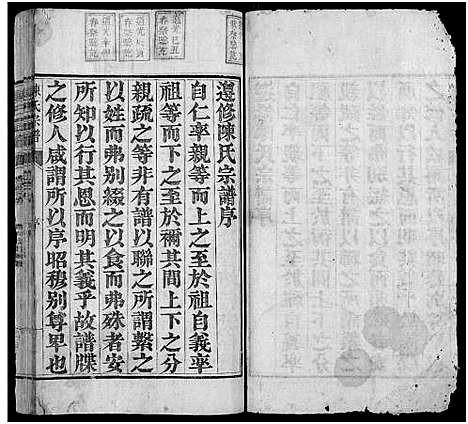 遷修陳氏宗譜序
自仁率親等而上之至於祖自義率
祖等而下之至於禰其間上下之分
親疏之等非有譜以聯之所謂繫之
以姓而弗別綴之以食而弗殊者安
所知以行其恩而明其義乎故譜牒
之修人咸謂所以序昭穆別尊卑也
陳氏宗譜
序
道光己丑
春祭驗訖
春祭驗訖